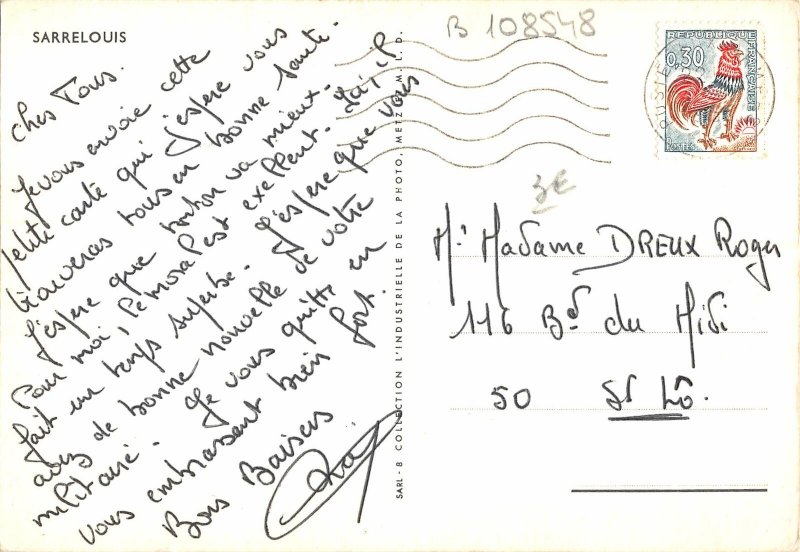 SARRELOUIS
B 108548
RÉPUBLIQUE
FRANÇAISE
0,30
POSTES
Chers Tous.
Je vous envoie cette
petite carte qui j'espère vous
trouveras tous en bonne santé.
J'espère que tonton va mieux.
Pour moi, le moral est exellent. Ici, il
fait un temps superbe. J'espère que vous
avez de bonne nouvelle de votre
militaire. Je vous quitte en
vous embrassant bien fort.
Bons Baisers
SARL - 8 COLLECTION L'INDUSTRIELLE DE LA PHOTO. METZ M.L.D.
3€
Mr Madame DREUX Roger
116 Bd du Midi
50 St Lô.